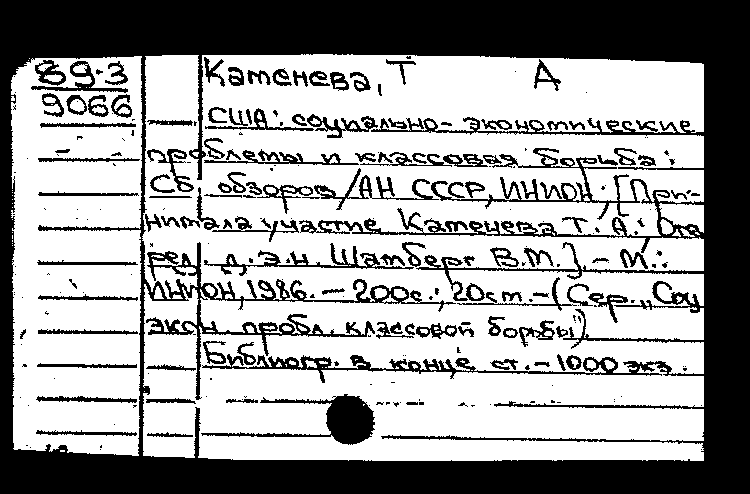 89-3
9066
Каменева, Т А
США: социально-экономические
проблемы и классовая борьба:
Сб. обзоров / АН СССР, ИНИОН; [При-
нимала участие Каменева Т. А.: Отв.
ред. д.э.н. Шамберг В.М.]. - М.:
ИНИОН, 1986. - 200с.; 20см. - (Сер. „Соц
экон. пробл. классовой борьбы")
Библиогр. в конце ст. - 1000 экз.